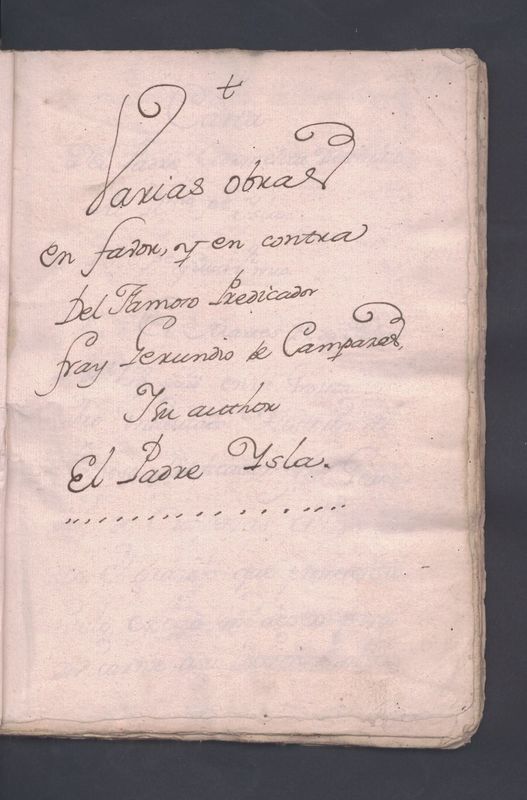 †
Varias obras
en favor, y en contra
Del Famoso Predicador
fray Gerundio de Campazas,
Y su author
El Padre Ysla.